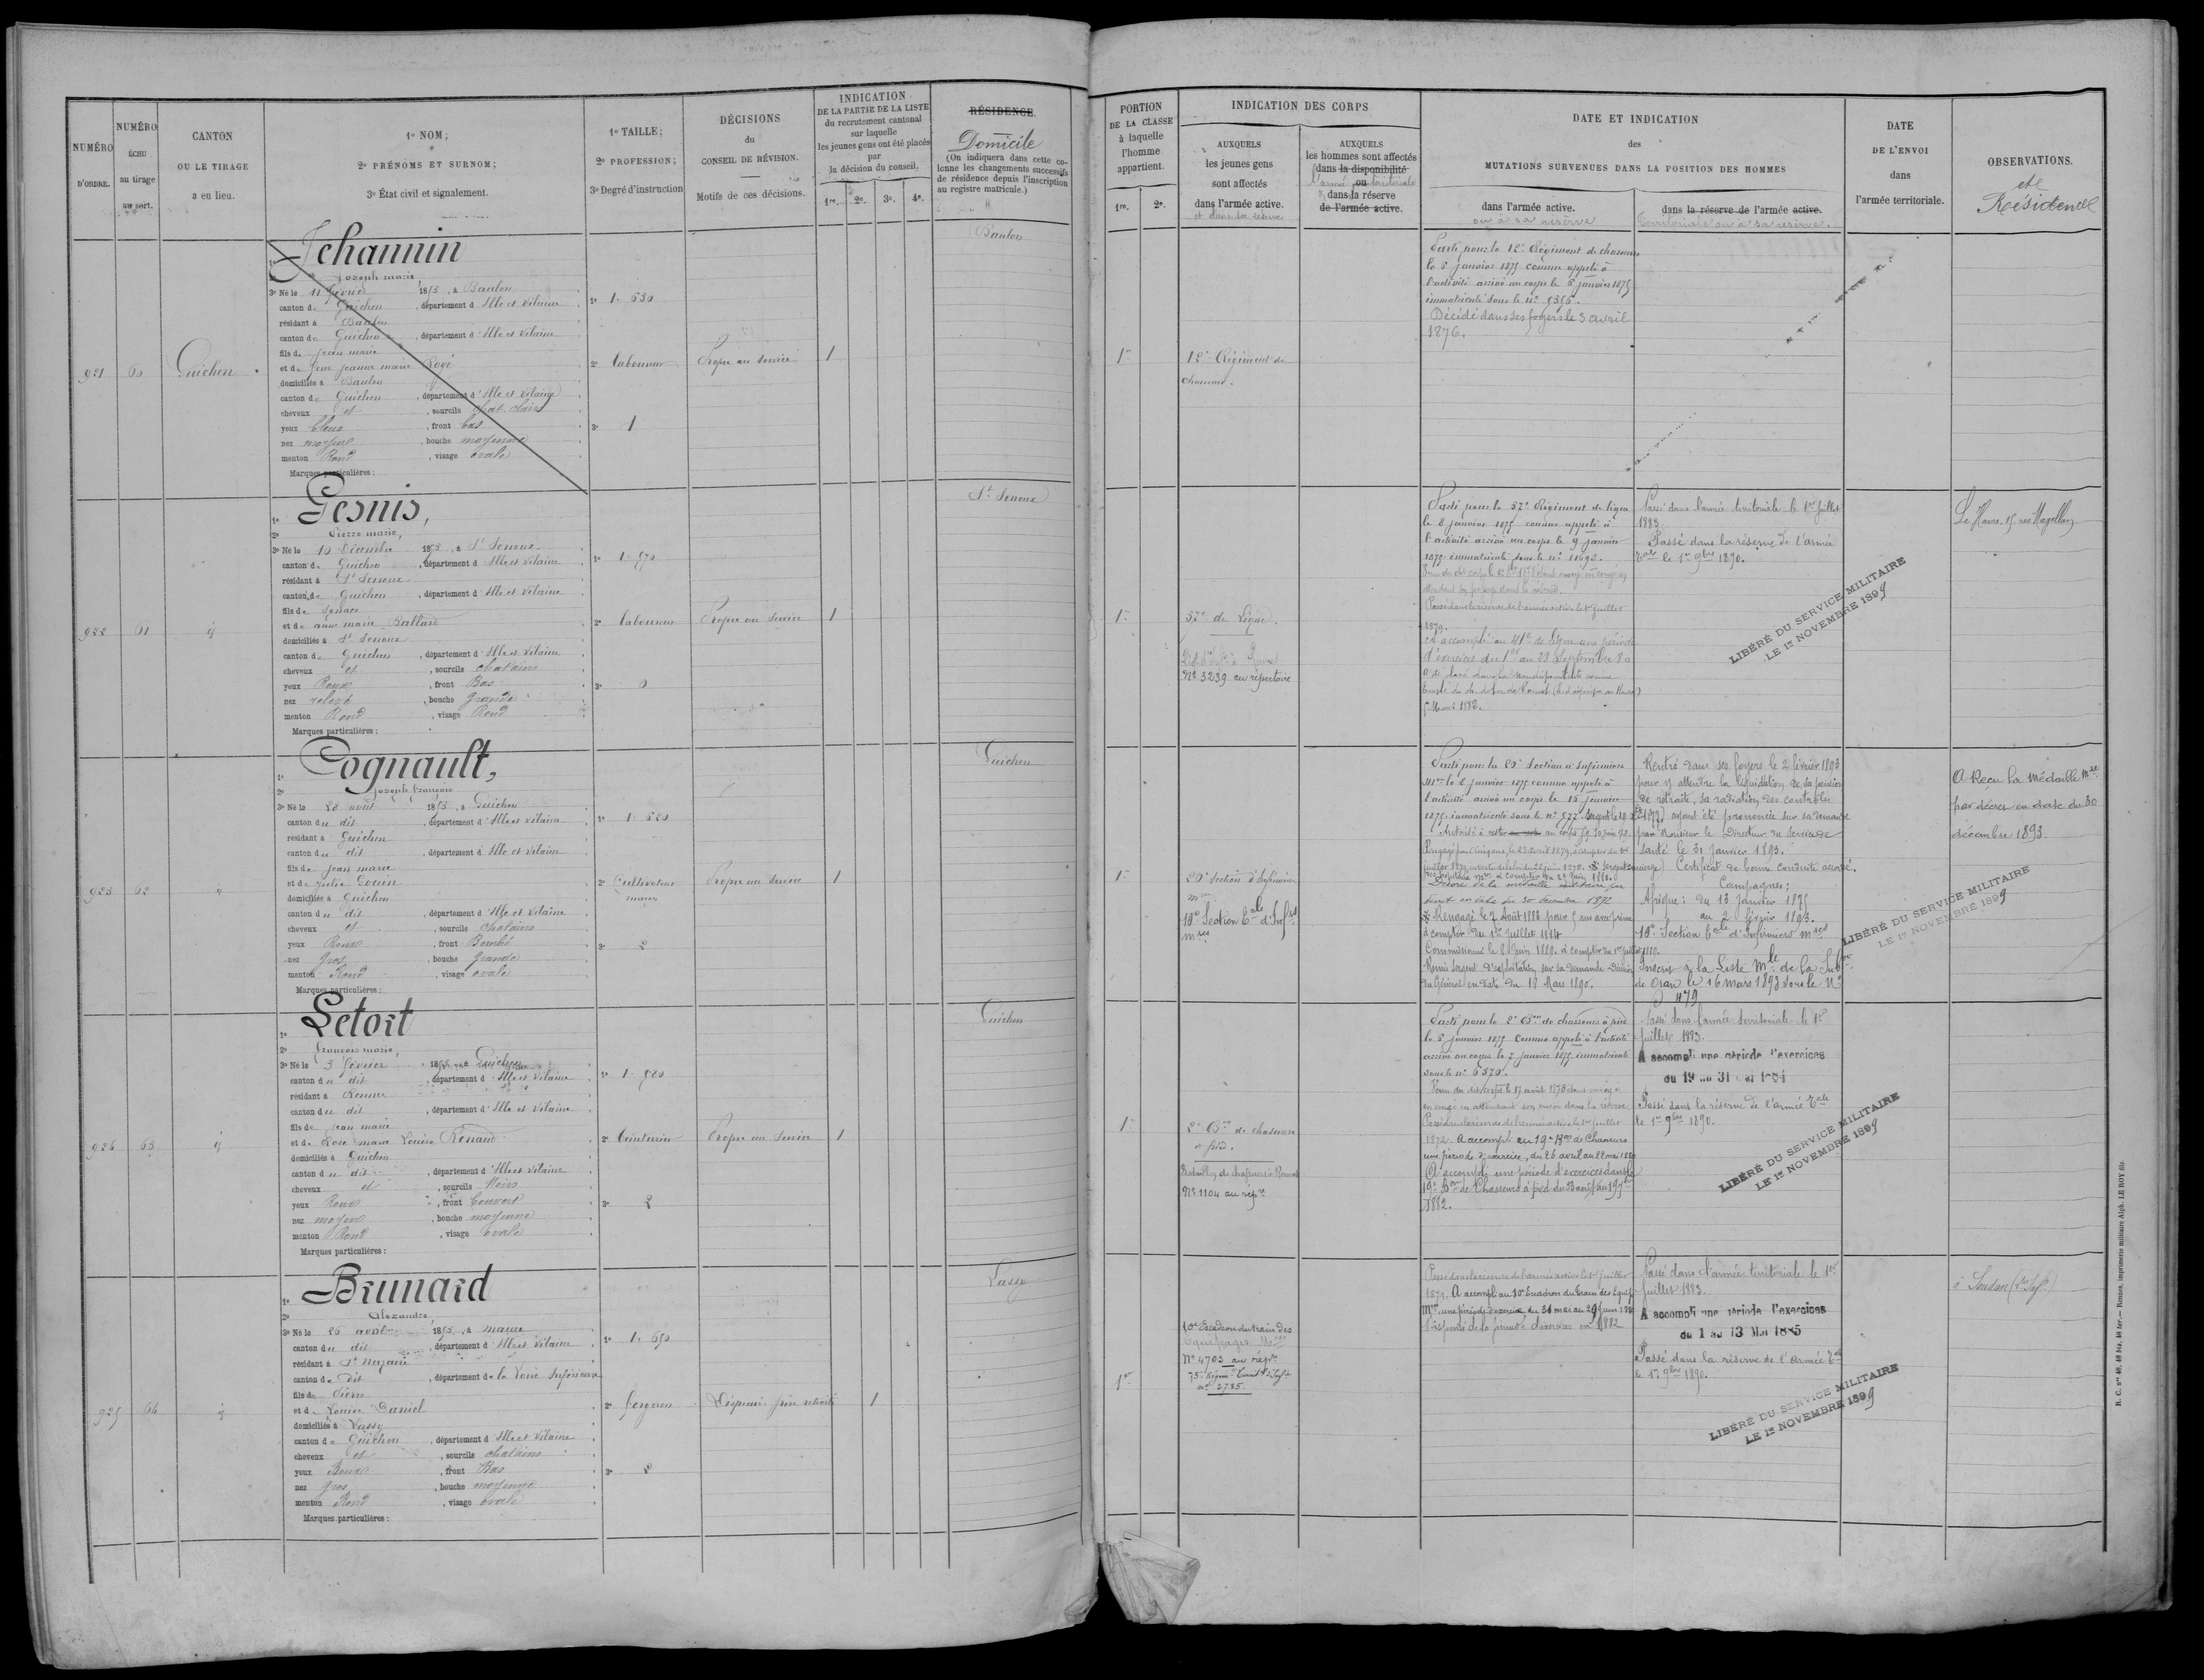 NUMÉRO
D'ORDRE.
NUMÉRO
ÉCHU
au tirage
au sort.
CANTON
OU LE TIRAGE
a eu lieu.
1º NOM;
2º PRÉNOMS ET SURNOM;
3º État civil et signalement.
1º TAILLE;
2º PROFESSION;
3º Degré d'instruction
DÉCISIONS
du
CONSEIL DE RÉVISION.
Motifs de ces décisions.
INDICATION
DE LA PARTIE DE LA LISTE
du recrutement cantonal
sur laquelle
les jeunes gens ont été placés
par
la décision du conseil.
1re. 2e. 3e. 4e.
RÉSIDENCE.
Domicile
(On indiquera dans cette co-
lonne les changements successifs
de résidence depuis l'inscription
au registre matricule.)
921
60
Guichen
Jehannin
Joseph marie
3º Né le 11 février 1853, à Baulon
canton de Guichen, département d'Ille et Vilaine
résidant à Baulon
canton de Guichen, département d'Ille et Vilaine
fils de Jean marie
et de feue jeanne marie Rogé
domiciliés à Baulon
canton de Guichen, département d'Ille et Vilaine
cheveux et, sourcils chat. clairs
yeux bleus, front bas
nez moyen, bouche moyenne
menton Rond, visage ovale
Marques particulières:
1º 1. 630
2º laboureur
3º 1
Propre au service
1
Baulon
922
61
id
Gesnis,
Pierre marie,
3º Né le 10 Décembre 1853, à St Senoux
canton de Guichen, département d'Ille et Vilaine
résidant à St Senoux
canton de Guichen, département d'Ille et Vilaine
fils de
et de anne marie Ballard
domiciliés à St Senoux
canton de Guichen, département d'Ille et Vilaine
cheveux et, sourcils chatains
yeux Roux, front Bas
nez relevé, bouche Grande
menton Rond, visage Rond
Marques particulières:
1º 1. 570
2º laboureur
3º 0
Propre au service
1
St Senoux
923
62
id
Cognault,
Joseph François
3º Né le 28 août 1853, à Guichen
canton du dit, département d'Ille et Vilaine
résidant à Guichen
canton du dit, département d'Ille et Vilaine
fils de Jean marie
et de Julie
domiciliés à Guichen
canton du dit, département d'Ille et Vilaine
cheveux et, sourcils chatains
yeux Roux, front Bombé
nez Gros, bouche Grande
menton Rond, visage ovale
Marques particulières:
1º 1. 680
2º Cultivateur
3º 2
Propre au service
1
Guichen
924
63
id
Letort
François marie,
3º Né le 3 février 1853, à Guichen
canton du dit, département d'Ille et Vilaine
résidant à Rennes
canton du dit, département d'Ille et Vilaine
fils de Jean marie
et de Rose marie Louise Renaud
domiciliés à Guichen
canton du dit, département d'Ille et Vilaine
cheveux et, sourcils Noirs
yeux Roux, front Couvert
nez moyen, bouche moyenne
menton Rond, visage ovale
Marques particulières:
1º 1. 580
2º
3º 2
Propre au service
1
Guichen
925
64
id
Brunard
Alexandre,
3º Né le 26 avril 1853, à maure
canton du dit, département d'Ille et Vilaine
résidant à St Nazaire
canton de dit, département de la Loire Inférieure
fils de Pierre
et de Louise Daniel
domiciliés à Lassy
canton de Guichen, département d'Ille et Vilaine
cheveux et, sourcils chatains
yeux Roux, front Bas
nez Gros, bouche moyenne
menton Rond, visage ovale
Marques particulières:
1º 1. 650
2º forgeron
3º 2
Dispensé
1
Lassy
PORTION
DE LA CLASSE
à laquelle
l'homme
appartient.
1re. 2e.
INDICATION DES CORPS
AUXQUELS
les jeunes gens
sont affectés
dans l'armée active.
et dans sa réserve
AUXQUELS
les hommes sont affectés
dans la disponibilité
ou
l'armée territoriale
dans la réserve
de l'armée active.
DATE ET INDICATION
des
MUTATIONS SURVENUES DANS LA POSITION DES HOMMES
dans l'armée active.
ou à sa réserve
dans la réserve de l'armée active.
territoriale ou à sa réserve.
DATE
DE L'ENVOI
dans
l'armée territoriale.
OBSERVATIONS.
et
Résidence
1re
12e Régiment de
chasseurs.
Parti pour le 12e Régiment de chasseurs
le 5 janvier 1875 comme appelé à
l'activité arrivé au corps le 6 janvier 1875
immatriculé sous le nº 2356.
Décédé dans ses foyers le 3 avril
1876.
1re
57e de Ligne.
Nº 3239 au répertoire
Parti pour le 57e Régiment de ligne
le 5 janvier 1875 comme appelé à
l'activité arrivé au corps le 9 janvier
1875 immatriculé sous le nº 11692.
Passé dans la réserve de l'armée active le 1er juillet
1879.
A accompli au 41e de ligne une période
d'exercices du 1er au 28 Septembre 80
5 Mars 1882.
Passé dans l'armée territoriale le 1er Juillet
1883.
Passé dans la réserve de l'armée
Tale le 1er 9bre 1890.
LIBÉRÉ DU SERVICE MILITAIRE
LE 1er NOVEMBRE 1899
Le Havre, 15 rue Magellan
1re
20e Section d'Infirmiers
mres
19e Section tale d'Infers
mres
Parti pour la 20e Section d'Infirmiers
mres le 5 janvier 1875 comme appelé à
l'activité arrivé au corps le 13 janvier
1875 immatriculé sous le nº 577.
Décoré de la médaille militaire par
décret en date du 30 décembre 1892
Rengagé le 7 Août 1883 pour 5 ans avec prime
à compter du 1er Juillet 1884
Commissionné le 8 Juin 1880 à compter du 1er juillet 1880.
Remis Sergent d'exploitation sur sa demande Décision
du Général en date du 18 Mars 1890.
Rentré dans ses foyers le 2 février 1893
pour y attendre la liquidation de sa pension
de retraite, sa radiation des contrôles
ayant été prononcée sur sa demande
par Monsieur le Directeur du Service de
santé le 31 janvier 1893.
Certificat de bonne conduite accordé.
Campagnes:
Afrique: du 13 janvier 1875
au 2 février 1893.
19e Section tale d'Infirmiers mres
Inscrit à la Liste Mle de la Subon
de Oran le 16 mars 1893 sous le Nº
479
LIBÉRÉ DU SERVICE MILITAIRE
LE 1er NOVEMBRE 1899
A Reçu la Médaille mre
par décret en date du 30
décembre 1893.
1re
2e Bon de chasseurs
à pied.
Bataillon de chasseurs à Rennes
Nº 1104 au répre
Parti pour le 2e Bon de chasseurs à pied
le 5 janvier 1875 comme appelé à l'activité
arrivé au corps le 7 janvier 1875 immatriculé
sous le nº 6370.
en congé en attendant son envoi dans la réserve
Passé dans la réserve de l'armée active le 1er juillet
1879. A accompli au 19e Bon de Chasseurs
une période d'exercice, du 26 avril au 22 mai 1880
A accompli une période d'exercices dans le
19e Bon de Chasseurs à pied du
1882.
Passé dans l'armée territoriale le 1er
Juillet 1883.
A accompli une période d'exercices
du 19 au 31 mai 1884
Passé dans la réserve de l'armée Tale
le 1er 9bre 1890.
LIBÉRÉ DU SERVICE MILITAIRE
LE 1er NOVEMBRE 1899
1re
10e Escadron du train des
équipages Mres
Nº 4703 au répre
75e Régim. Territ. d'Infie
nº 2785.
Passé dans la réserve de l'armée active le 1er juillet
1879. A accompli au 10e Escadron du train des Equip.
Mres, une période d'exercice du 31 mai au 29 juin 1880
Dispensé de la période d'exercices en 1882
Passé dans l'armée territoriale le 1er
Juillet 1883.
A accompli une période d'exercices
du 1 au 13 Mai 1885
Passé dans la réserve de l'Armée Tale
le 1er 9bre 1890.
LIBÉRÉ DU SERVICE MILITAIRE
LE 1er NOVEMBRE 1899
à Soudan (Lre Infre)
Rennes, imprimerie militaire Alph. LE ROY fils